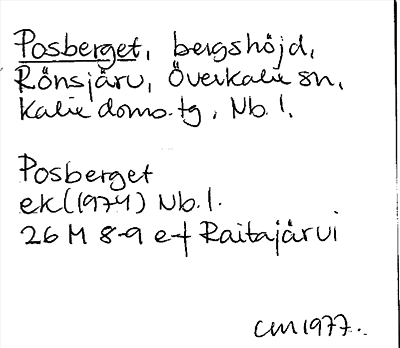 Posberget, bergshöjd,
Rönsjärv, Överkalix sn,
Kalix doms.tg, Nb.l.
Posberget
ek(1974) Nb.l.
26 M 8-9 e-f Raitajärvi
CM 1977.